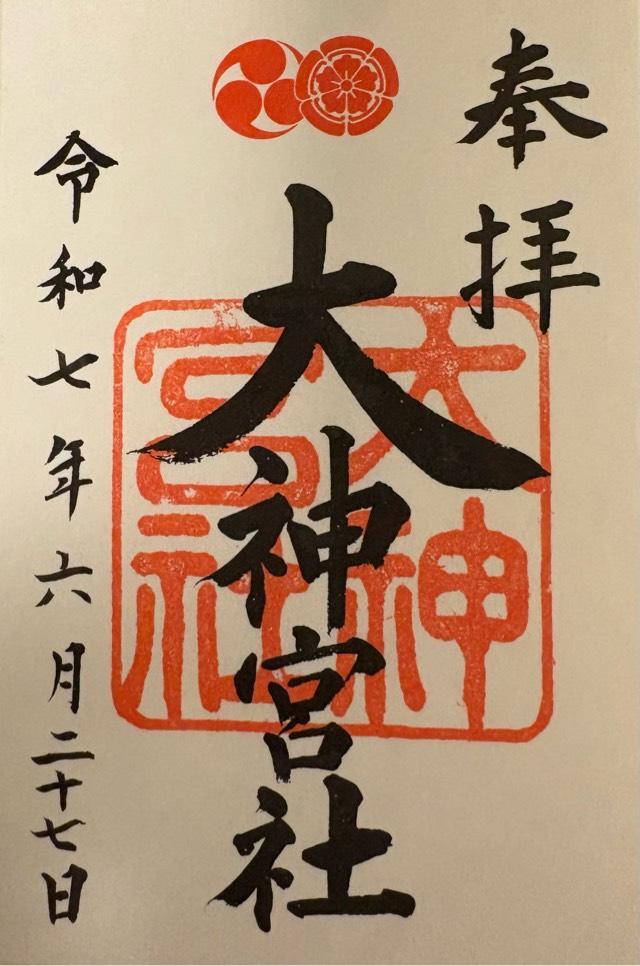 奉拝
大神宮社
大神宮社
令和七年六月二十七日